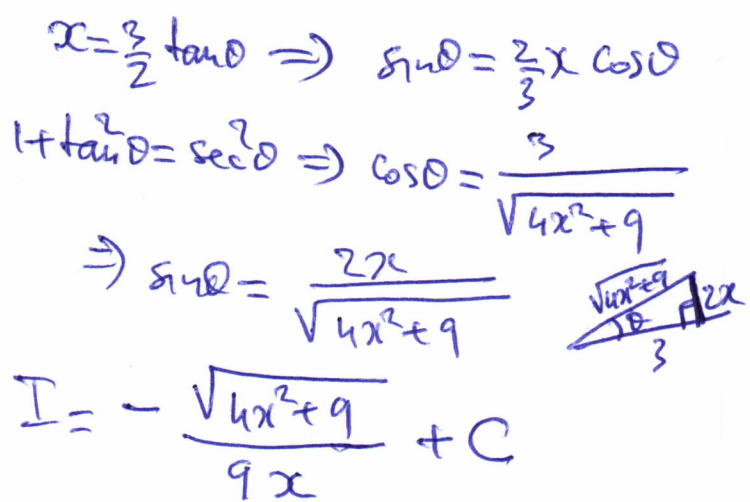 x = 3/2 tanθ ⇒ sinθ = 2/3 x cosθ
1 + tan²θ = sec²θ ⇒ cosθ = 3/√(4x² + 9)
⇒ sinθ = 2x/√(4x² + 9)
√(4x² + 9) θ 2x
3
I = - √(4x² + 9)/9x + C